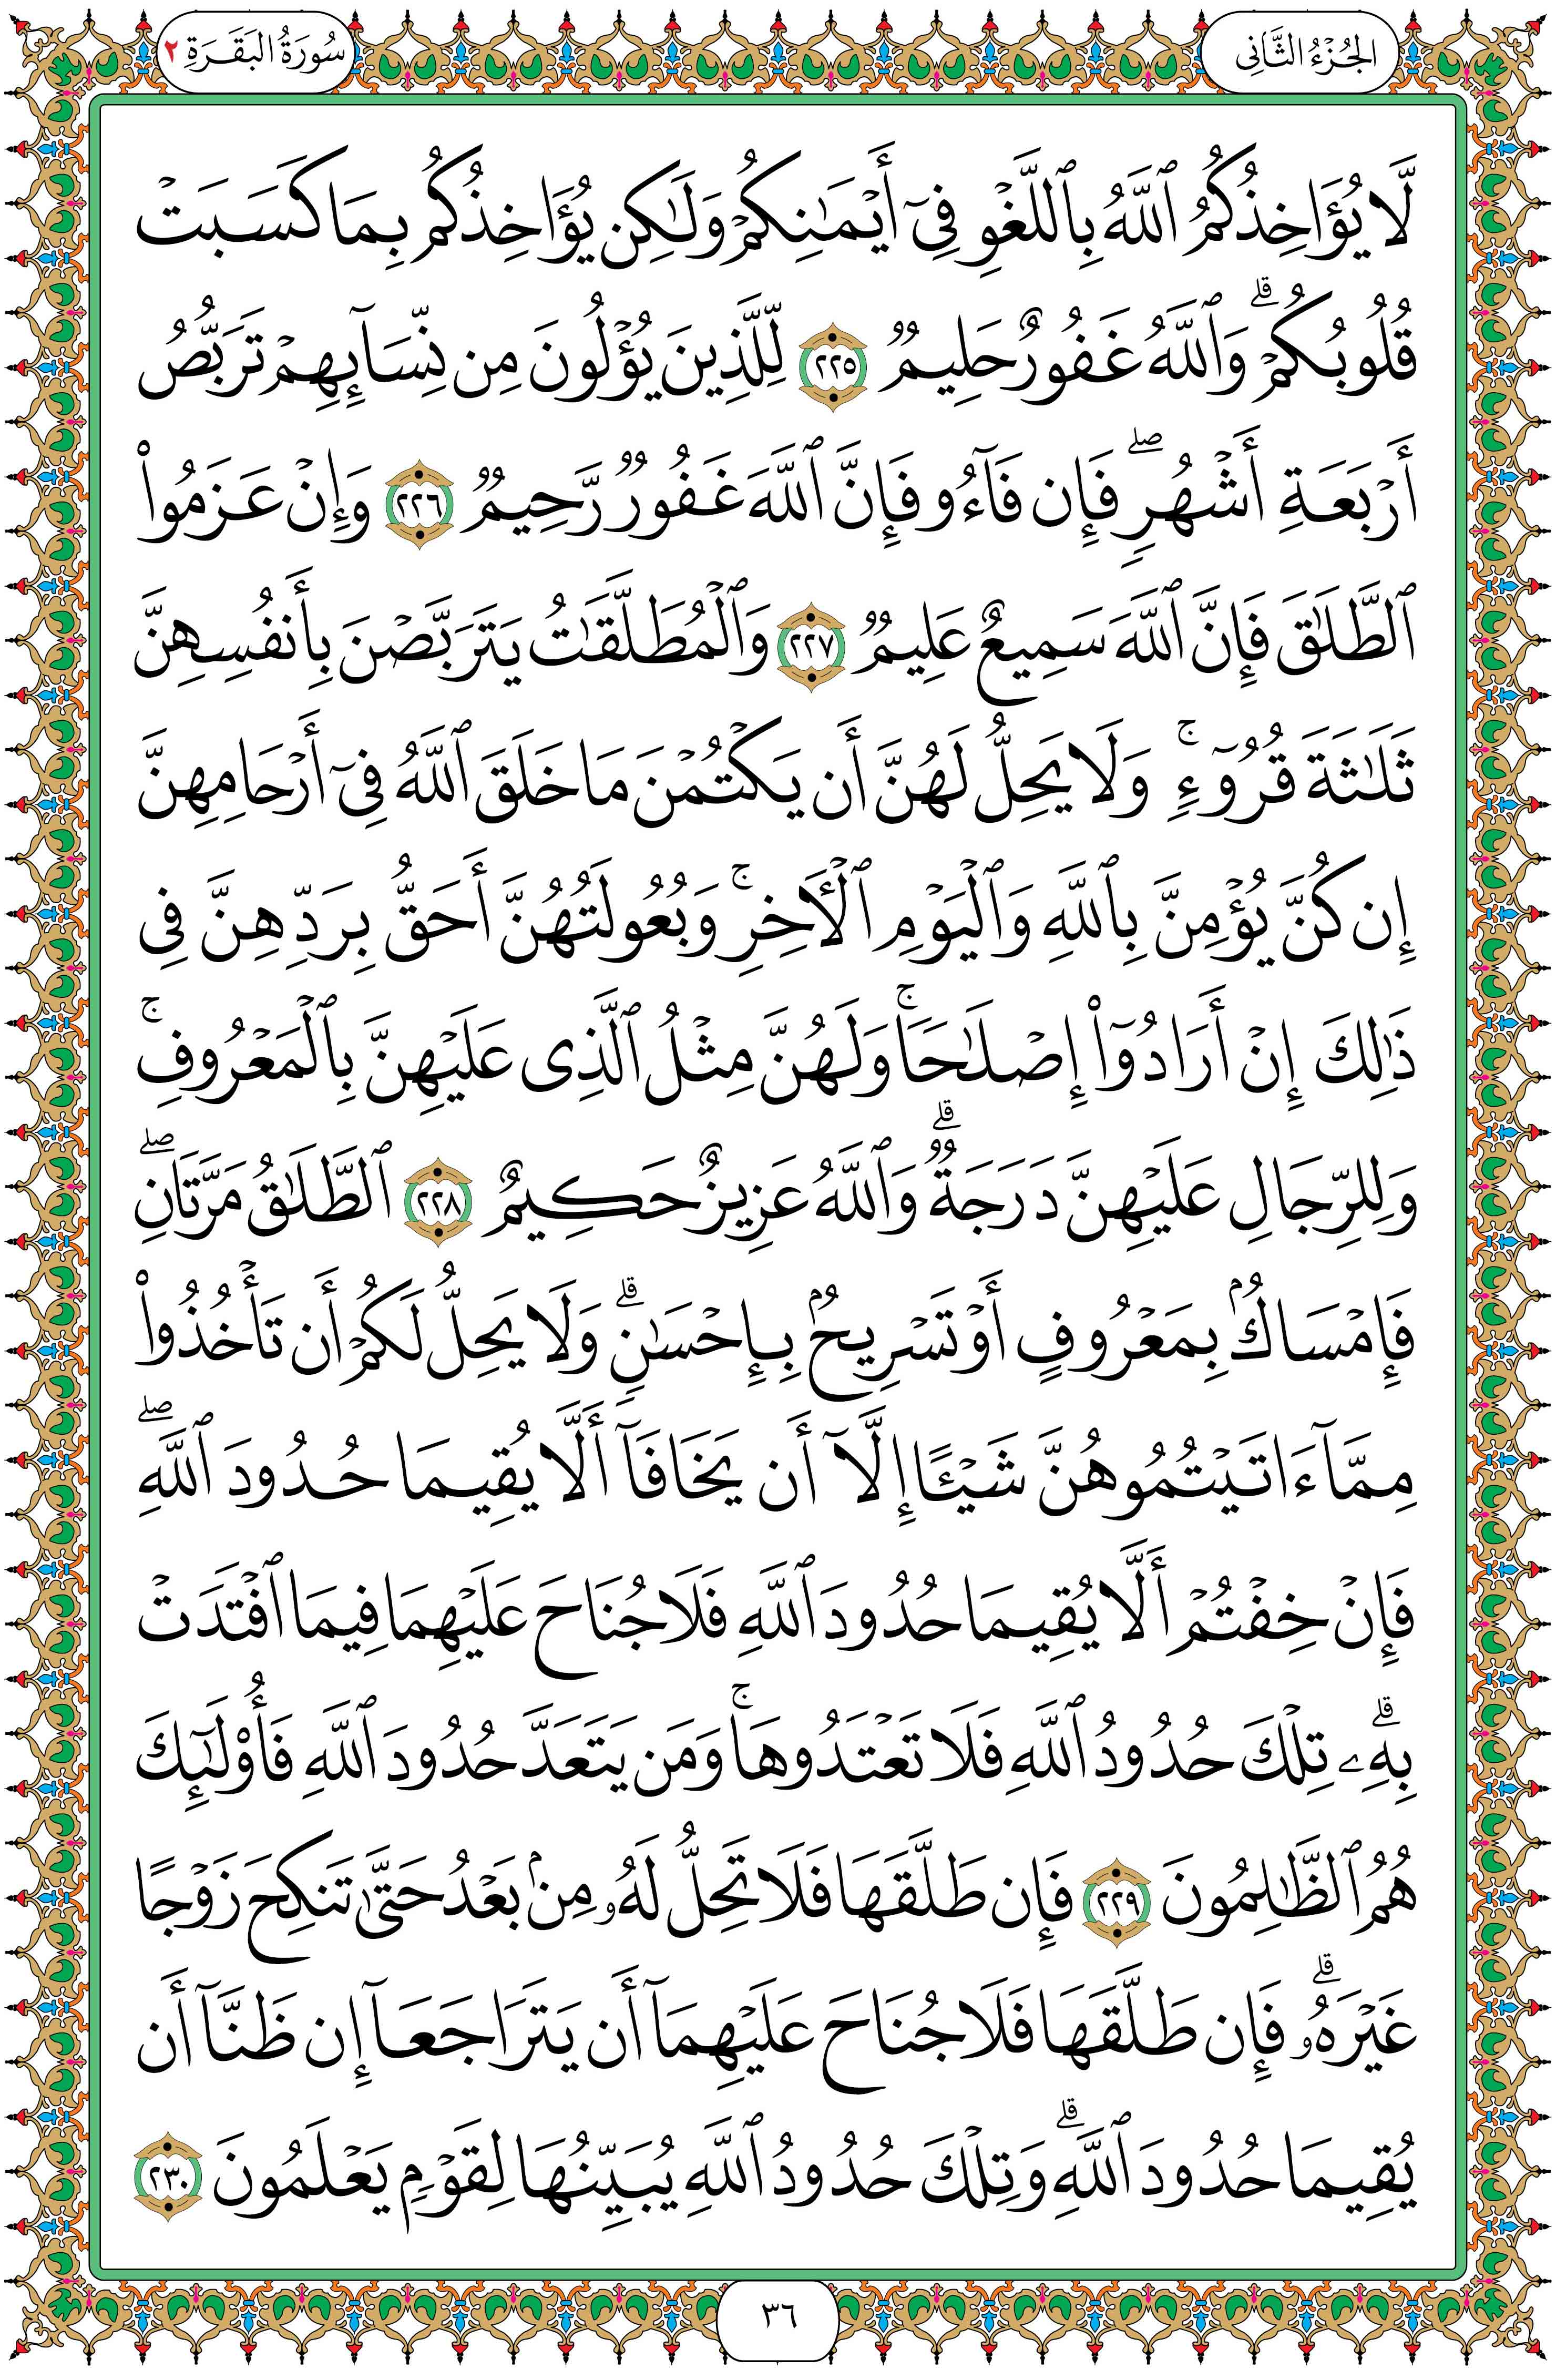 الجُزْءُ الثَّانِي
سُورَةُ البَقَرَةِ ٢
لَّا يُؤَاخِذُكُمُ ٱللَّهُ بِٱللَّغْوِ فِىٓ أَيْمَٰنِكُمْ وَلَٰكِن يُؤَاخِذُكُم بِمَا كَسَبَتْ
قُلُوبُكُمْ ۗ وَٱللَّهُ غَفُورٌ حَلِيمٌ ٢٢٥ لِّلَّذِينَ يُؤْلُونَ مِن نِّسَآئِهِمْ تَرَبُّصُ
أَرْبَعَةِ أَشْهُرٍ ۖ فَإِن فَآءُو فَإِنَّ ٱللَّهَ غَفُورٌ رَّحِيمٌ ٢٢٦ وَإِنْ عَزَمُوا۟
ٱلطَّلَٰقَ فَإِنَّ ٱللَّهَ سَمِيعٌ عَلِيمٌ ٢٢٧ وَٱلْمُطَلَّقَٰتُ يَتَرَبَّصْنَ بِأَنفُسِهِنَّ
ثَلَٰثَةَ قُرُوٓءٍ ۚ وَلَا يَحِلُّ لَهُنَّ أَن يَكْتُمْنَ مَا خَلَقَ ٱللَّهُ فِىٓ أَرْحَامِهِنَّ
إِن كُنَّ يُؤْمِنَّ بِٱللَّهِ وَٱلْيَوْمِ ٱلْءَاخِرِ ۚ وَبُعُولَتُهُنَّ أَحَقُّ بِرَدِّهِنَّ فِى
ذَٰلِكَ إِنْ أَرَادُوٓا۟ إِصْلَٰحًا ۚ وَلَهُنَّ مِثْلُ ٱلَّذِى عَلَيْهِنَّ بِٱلْمَعْرُوفِ ۚ
وَلِلرِّجَالِ عَلَيْهِنَّ دَرَجَةٌ ۗ وَٱللَّهُ عَزِيزٌ حَكِيمٌ ٢٢٨ ٱلطَّلَٰقُ مَرَّتَانِ ۖ
فَإِمْسَاكٌۢ بِمَعْرُوفٍ أَوْ تَسْرِيحٌۢ بِإِحْسَٰنٍ ۗ وَلَا يَحِلُّ لَكُمْ أَن تَأْخُذُوا۟
مِمَّآ ءَاتَيْتُمُوهُنَّ شَيْـًٔا إِلَّآ أَن يَخَافَآ أَلَّا يُقِيمَا حُدُودَ ٱللَّهِ ۖ
فَإِنْ خِفْتُمْ أَلَّا يُقِيمَا حُدُودَ ٱللَّهِ فَلَا جُنَاحَ عَلَيْهِمَا فِيمَا ٱفْتَدَتْ
بِهِۦ ۗ تِلْكَ حُدُودُ ٱللَّهِ فَلَا تَعْتَدُوهَا ۚ وَمَن يَتَعَدَّ حُدُودَ ٱللَّهِ فَأُو۟لَٰٓئِكَ
هُمُ ٱلظَّٰلِمُونَ ٢٢٩ فَإِن طَلَّقَهَا فَلَا تَحِلُّ لَهُۥ مِنۢ بَعْدُ حَتَّىٰ تَنكِحَ زَوْجًا
غَيْرَهُۥ ۗ فَإِن طَلَّقَهَا فَلَا جُنَاحَ عَلَيْهِمَآ أَن يَتَرَاجَعَآ إِن ظَنَّآ أَن
يُقِيمَا حُدُودَ ٱللَّهِ ۗ وَتِلْكَ حُدُودُ ٱللَّهِ يُبَيِّنُهَا لِقَوْمٍ يَعْلَمُونَ ٢٣٠
٣٦